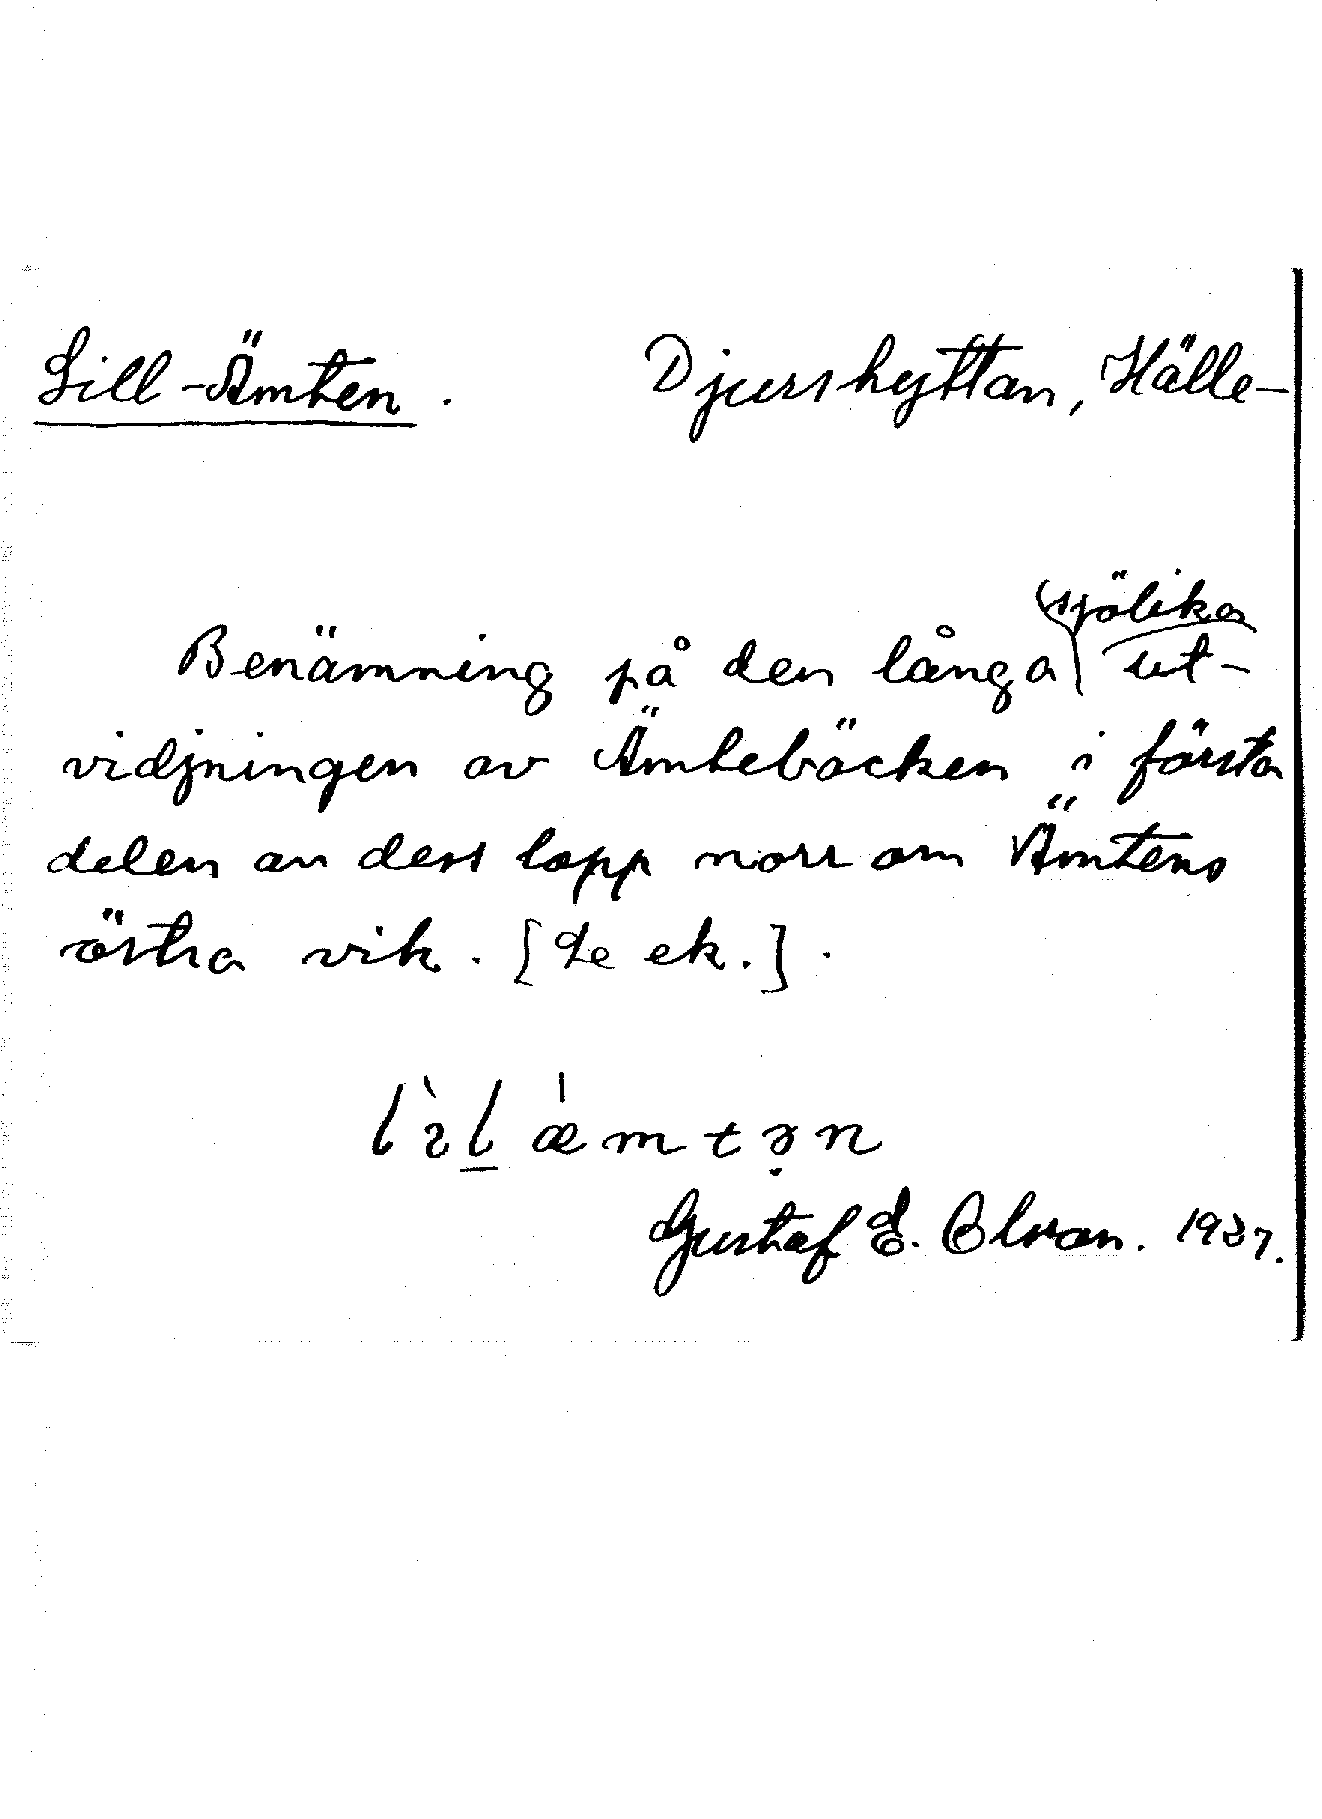 Lill-Ämten. Djurshyttan, Hälle-
sjölika
Benämning på den långa ut-
vidjningen av Ämtebäcken i första
delen av dess lopp norr om Ämtens
östra vik. [Se ek.].
lìl ǽmtən
Gustaf E. Olsson. 1937.